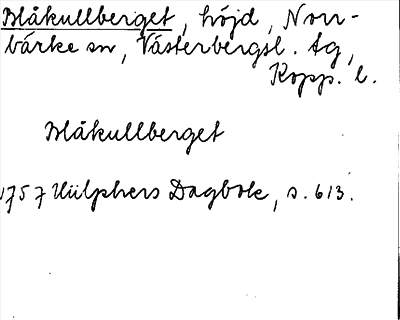 Blåkullberget, höjd, Norr-
bärke sn, Västerbergsl. tg,
Kopp. l.
Blåkullberget
1757 Hülphers Dagbok, s. 613.